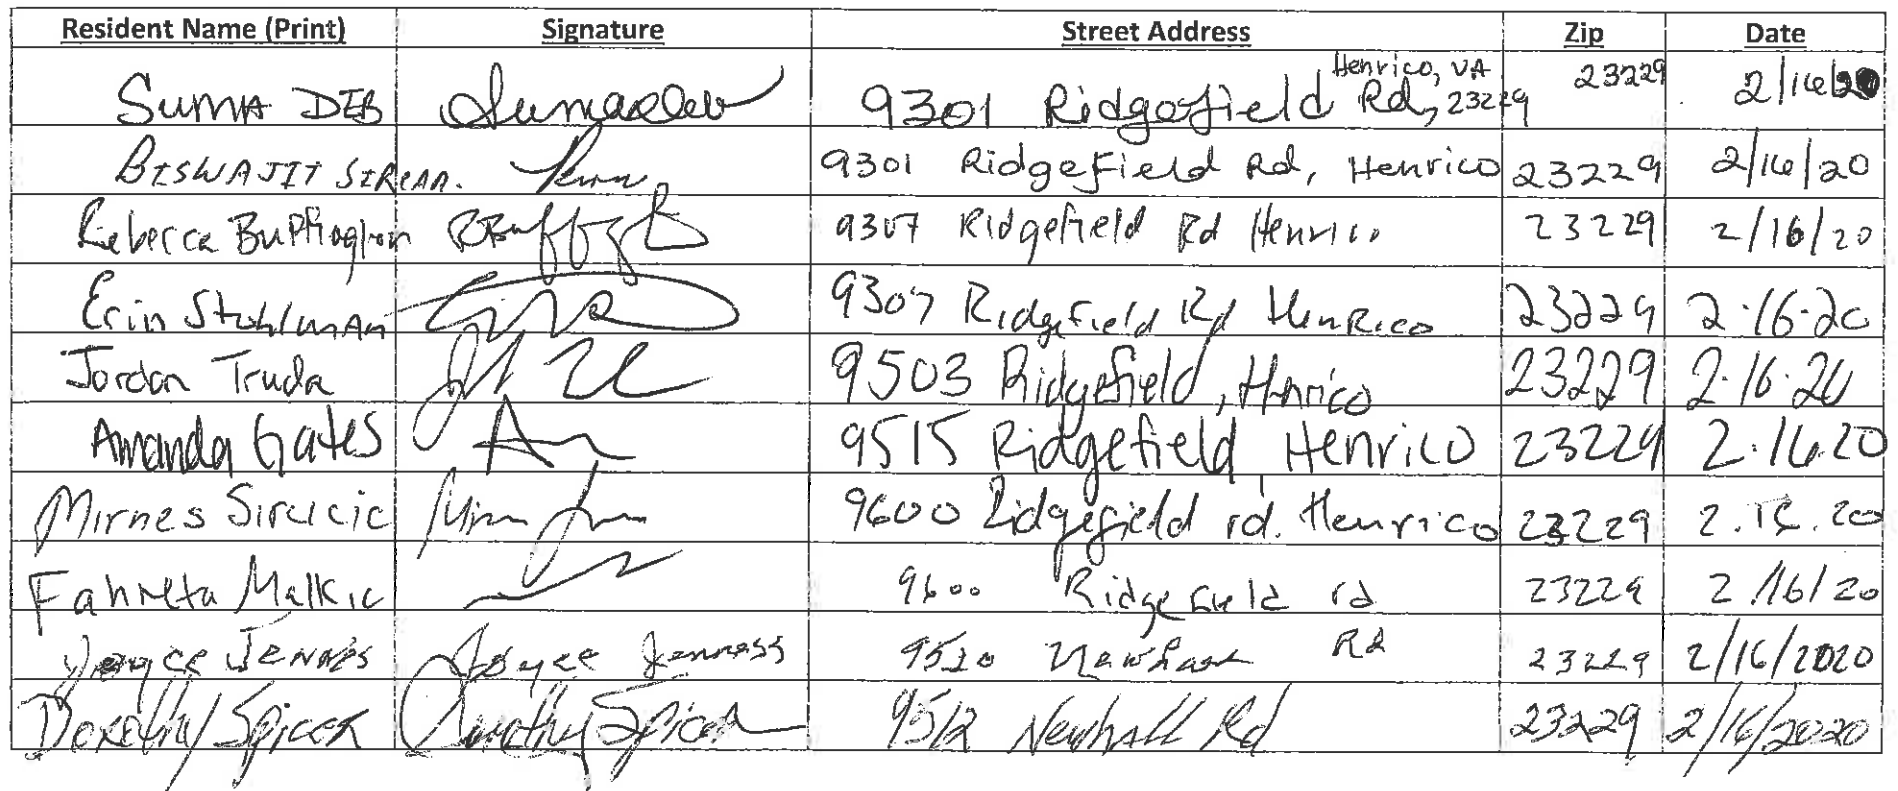 Resident Name (Print) Signature Street Address Zip Date
SUMA DEB Sumadeb 9301 Ridgefield Rd, Henrico, VA 23229 23229 2/16/20
BISWAJIT 9301 Ridgefield Rd, Henrico 23229 2/16/20
Rebecca Buffington 9307 Ridgefield Rd Henrico 23229 2/16/20
Erin Stohlman 9307 Ridgefield Rd Henrico 23229 2.16.20
Jordan Truda 9503 Ridgefield, Henrico 23229 2.16.20
Amanda Gates 9515 Ridgefield Henrico 23229 2.16.20
Mirnes Sircicic 9600 Ridgefield rd. Henrico 23229 2.16.20
Fahreta Malkic 9600 Ridgefield rd 23229 2/16/20
Joyce Jenness Joyce Jenness 9520 Newhall Rd 23229 2/16/2020
Dorothy Spicer Dorothy Spicer 9512 Newhall Rd 23229 2/16/2020